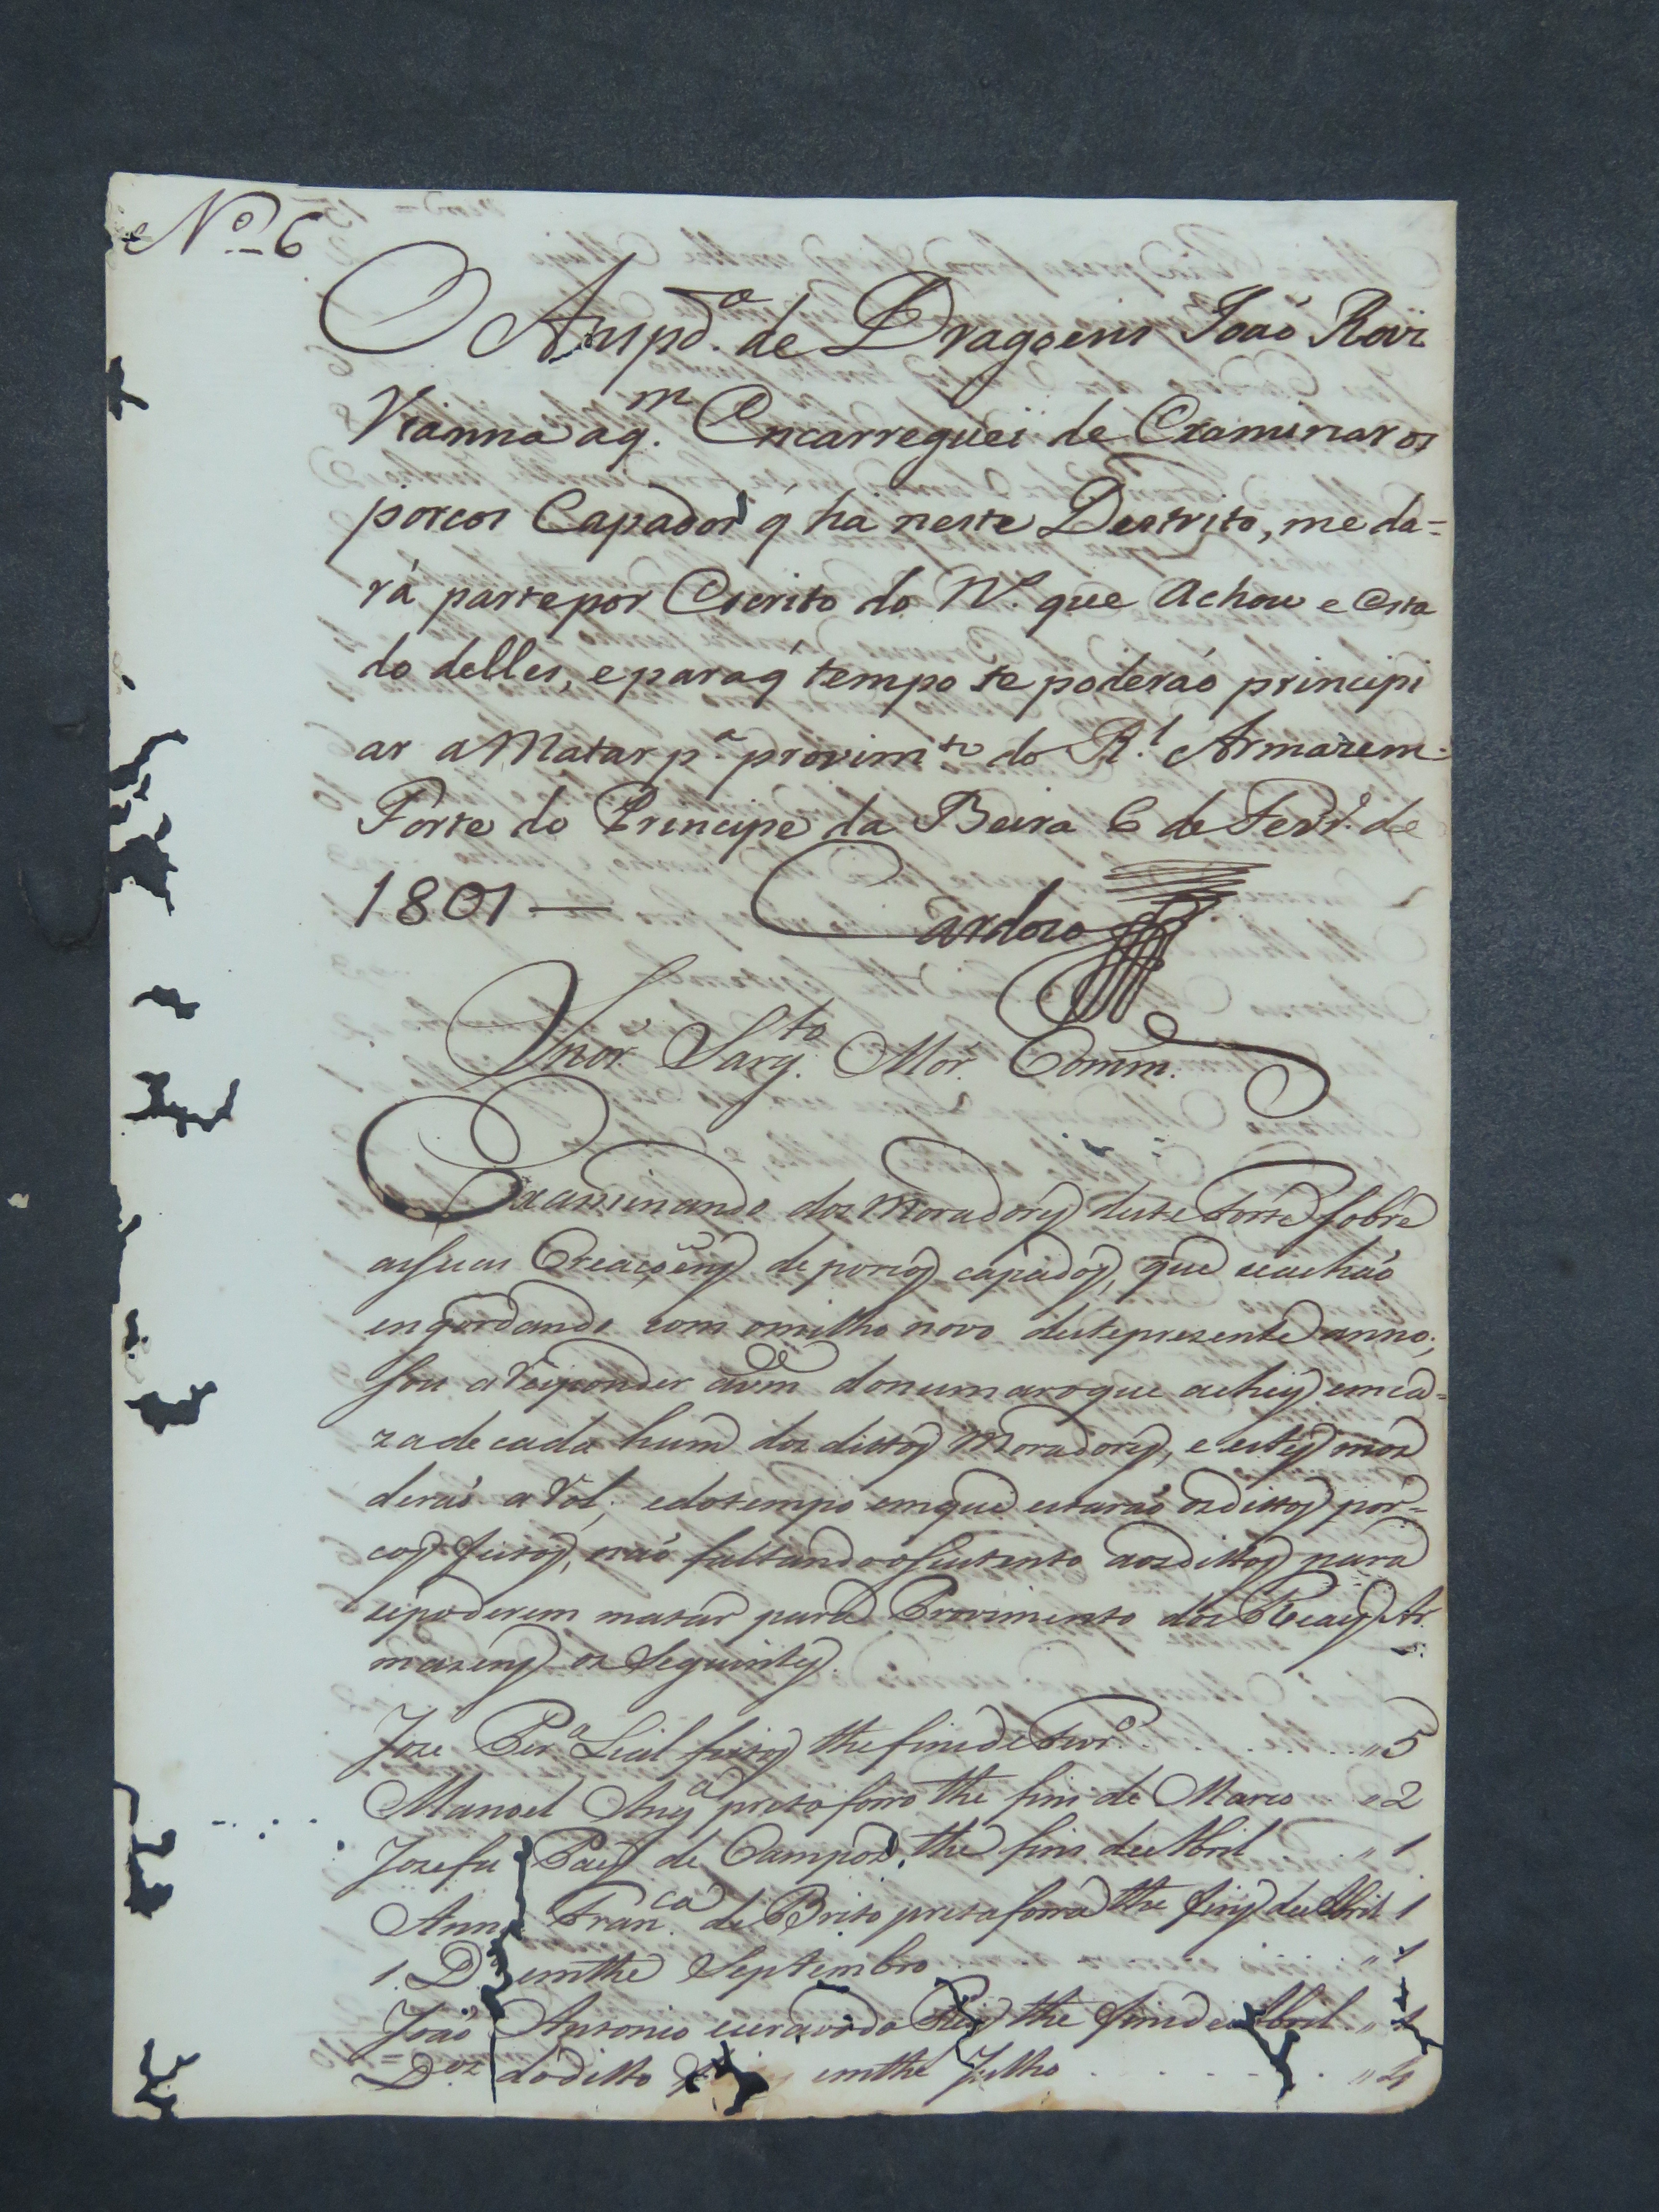 Nº 6
O Anspd.ª de Dragoens João Roiz
Vianna aq.m Encarreguei de Examinar os
porcos Capados q̃ ha neste Destrito, me da=
rá parte por Escrito do N.º que achou e Esta
do delles, e para q̃ tempo se poderáõ principi
ar a Matar p.ª provim.to do R.l Armazem.
Forte do Principe da Beira 6 de Fevr.º de
1801 — Cardozo
Snõr. Sarg.to Mór. Comm.
Examinando dos Moradores deste Forte sobre
as suas Creaçoens de porcos capados, que se achaõ
engordando com o milho novo deste prezente anno;
sou a Responder a vm do numaro que achey em ca=
za de cada hum dos dittos Moradores, e estes
deraõ a Rol; e do tempo em que estaraõ os dittos por=
cos feitos, naõ faltando o sustento aos dittos para
se poderem matar para Provimento dos Reaes Ar
mazens os Seguintes.
Joze Per.ª Leal feitos the fins de Fevr.º . . . . . " 5
Manoel preto forro the fins de Março " 2
Josefa Paes de Campos, the fins de Abril . " 1
Anna Fran.ca de Brito preta forra the fins de Abril 1
1. D.ª em the Septembro . . . " 1
Joaõ Antonio escravo do the fins de Abril. "
D.os do ditto em the Julho . . . . . . " 4